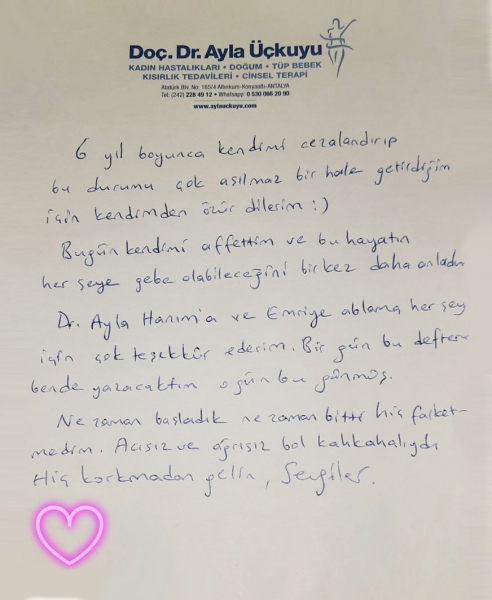 Doç. Dr. Ayla Üçkuyu
KADIN HASTALIKLARI • DOĞUM • TÜP BEBEK
KISIRLIK TEDAVİLERİ • CİNSEL TERAPİ
Atatürk Blv. No: 165/4 Altınkum-Konyaaltı-ANTALYA
Tel: (242) 228 49 12 • Whatsapp: 0 530 066 20 90
www.aylauckuyu.com
6 yıl boyunca kendimi cezalandırıp
bu durumu çok aşılmaz bir hale getirdiğim
için kendimden özür dilerim :)
Bugün kendimi affettim ve bu hayatın
her şeye gebe olabileceğini bir kez daha anladım
Dr. Ayla Hanım'a ve Emriye ablama her şey
için çok teşekkür ederim. Bir gün bu deftere
bende yazacaktım o gün bu günmüş.
Ne zaman başladık ne zaman bitti hiç farket-
medim. Acısız ve ağrısız bol kahkahalıydı
Hiç korkmadan gelin, Sevgiler.